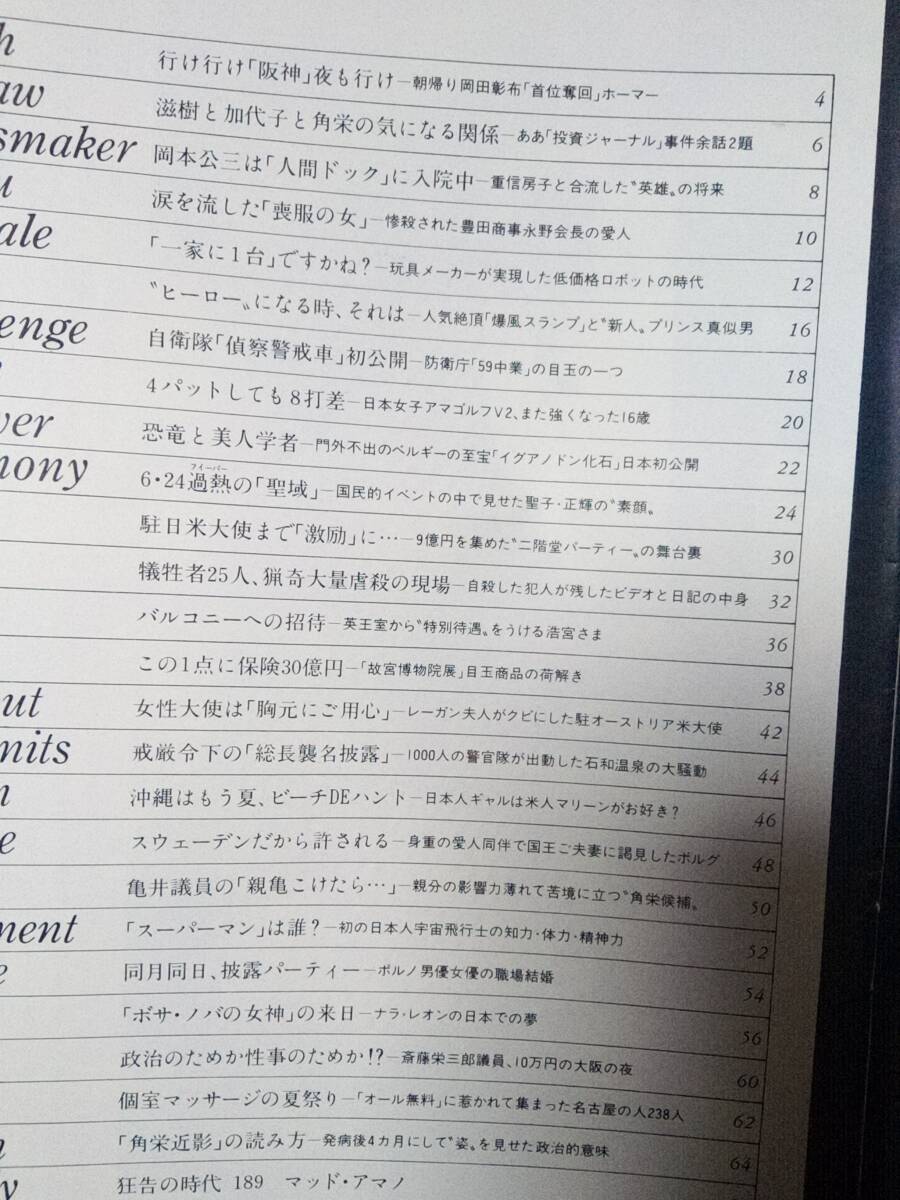 行け行け「阪神」夜も行け—朝帰り岡田彰布「首位奪回」ホーマー 4
滋樹と加代子と角栄の気になる関係—ああ「投資ジャーナル」事件余話2題 6
smaker 岡本公三は「人間ドック」に入院中—重信房子と合流した〝英雄〟の将来 8
涙を流した「喪服の女」—惨殺された豊田商事永野会長の愛人 10
ale 「一家に1台」ですかね?—玩具メーカーが実現した低価格ロボットの時代 12
〝ヒーロー〟になる時、それは—人気絶頂「爆風スランプ」と〝新人〟プリンス真似男 16
enge 自衛隊「偵察警戒車」初公開—防衛庁「59中業」の目玉の一つ 18
4パットしても8打差—日本女子アマゴルフV2、また強くなった16歳 20
ver 恐竜と美人学者—門外不出のベルギーの至宝「イグアノドン化石」日本初公開 22
mony 6・24過熱(フィーバー)の「聖域」—国民的イベントの中で見せた聖子・正輝の〝素顔〟 24
駐日米大使まで「激励」に…—9億円を集めた〝二階堂パーティー〟の舞台裏 30
犠牲者25人、猟奇大量虐殺の現場—自殺した犯人が残したビデオと日記の中身 32
バルコニーへの招待—英王室から〝特別待遇〟をうける浩宮さま 36
この1点に保険30億円—「故宮博物院展」目玉商品の荷解き 38
ut 女性大使は「胸元にご用心」—レーガン夫人がクビにした駐オーストリア米大使 42
mits 戒厳令下の「総長襲名披露」—1000人の警官隊が出動した石和温泉の大騒動 44
沖縄はもう夏、ビーチDEハント—日本人ギャルは米人マリーンがお好き? 46
スウェーデンだから許される—身重の愛人同伴で国王ご夫妻に謁見したボルグ 48
亀井議員の「親亀こけたら…」—親分の影響力薄れて苦境に立つ〝角栄候補〟 50
ment 「スーパーマン」は誰?—初の日本人宇宙飛行士の知力・体力・精神力 52
e 同月同日、披露パーティー—ポルノ男優女優の職場結婚 54
「ボサ・ノバの女神」の来日—ナラ・レオンの日本での夢 56
政治のためか性事のためか!?—斎藤栄三郎議員、10万円の大阪の夜 60
個室マッサージの夏祭り—「オール無料」に惹かれて集まった名古屋の人238人 62
「角栄近影」の読み方—発病後4カ月にして〝姿〟を見せた政治的意味 64
y 狂告の時代 189 マッド・アマノ